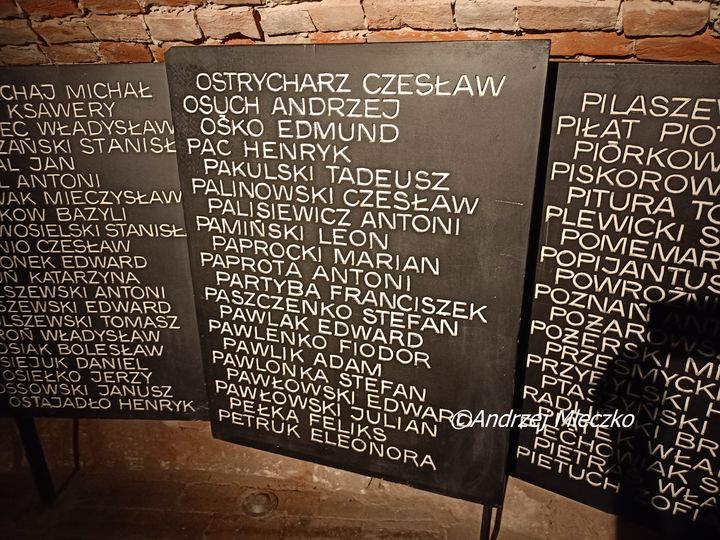 CHAJ MICHAŁ
KSAWERY
EC WŁADYSŁAW
ZAŃSKI STANISŁ
AL JAN
ANTONI
WAK MIECZYSŁAW
KOW BAZYLI
WOSIELSKI STANISŁ
NIO CZESŁAW
ONEK EDWARD
KATARZYNA
LSZEWSKI ANTONI
SZEWSKI EDWARD
OLSZEWSKI TOMASZ
ROŃ WŁADYSŁAW
OSIAK BOLESŁAW
SIEJUK DANIEL
OSIEŁKO JERZY
OSSOWSKI JANUSZ
OSTAJADŁO HENRYK
OSTRYCHARZ CZESŁAW
OSUCH ANDRZEJ
OŚKO EDMUND
PAC HENRYK
PAKULSKI TADEUSZ
PALINOWSKI CZESŁAW
PALISIEWICZ ANTONI
PAMIŃSKI LEON
PAPROCKI MARIAN
PAPROTA ANTONI
PARTYBA FRANCISZEK
PASZCZENKO STEFAN
PAWLAK EDWARD
PAWLENKO FIODOR
PAWLIK ADAM
PAWLONKA STEFAN
PAWŁOWSKI EDWARD
PAWŁOWSKI JULIAN
PEŁKA FELIKS
PETRUK ELEONORA
PILASZEW
PIŁAT PIO
PIÓRKOW
PISKOROW
PITURA TO
PLEWICKI S
POMEMAR
POPIJANTUS
POWROŹNI
POZNAŃ
POŻAROWS
POŻERSKI MI
PRZESMYCKI
PRZYBYLSKI
PTAS
RADL
PIETR
PIETUCH ZOFI
©Andrzej Mleczko